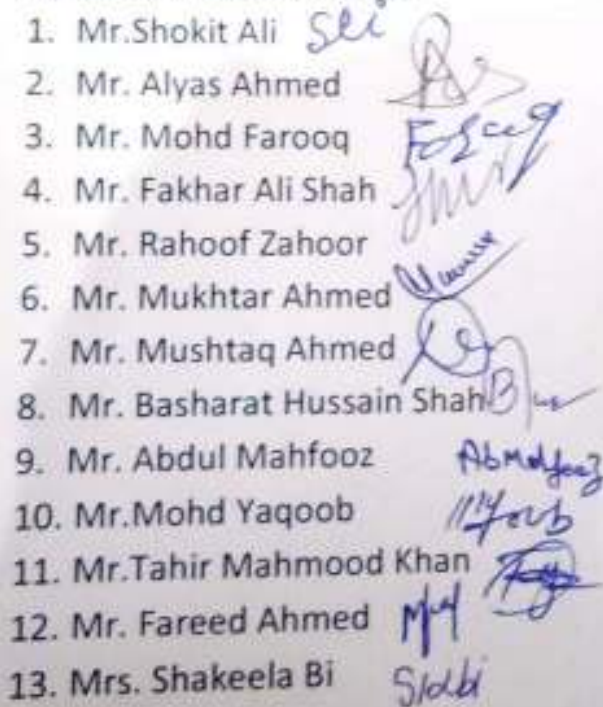 1. Mr.Shokit Ali
2. Mr. Alyas Ahmed
3. Mr. Mohd Farooq Farooq
4. Mr. Fakhar Ali Shah
5. Mr. Rahoof Zahoor
6. Mr. Mukhtar Ahmed
7. Mr. Mushtaq Ahmed
8. Mr. Basharat Hussain Shah
9. Mr. Abdul Mahfooz AbMahfooz
10. Mr.Mohd Yaqoob
11. Mr.Tahir Mahmood Khan
12. Mr. Fareed Ahmed
13. Mrs. Shakeela Bi